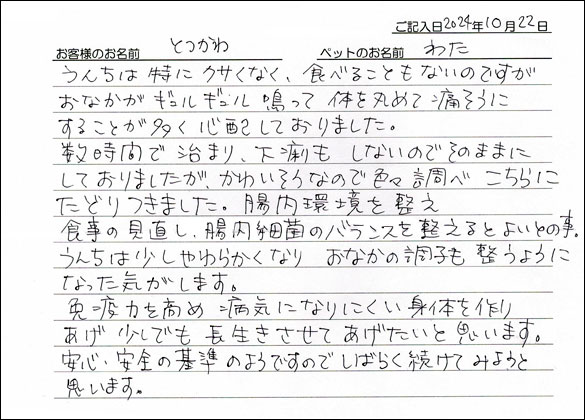 ご記入日2024年10月22日
お客様のお名前 とつがわ ペットのお名前 わた
うんちは特にクサくなく、食べることもないのですが
おなかがギュルギュル鳴って体を丸めて痛そうに
することが多く心配しておりました。
数時間で治まり、下痢もしないのでそのままに
しておりましたが、かわいそうなので色々調べこちらに
たどりつきました。腸内環境を整え
食事の見直し、腸内細菌のバランスを整えるとよいとの事。
うんちは少しやわらかくなりおなかの調子も整うように
なった気がします。
免疫力を高め病気になりにくい身体を作り
あげ少しでも長生きさせてあげたいと思います。
安心・安全の基準のようですのでしばらく続けてみようと
思います。